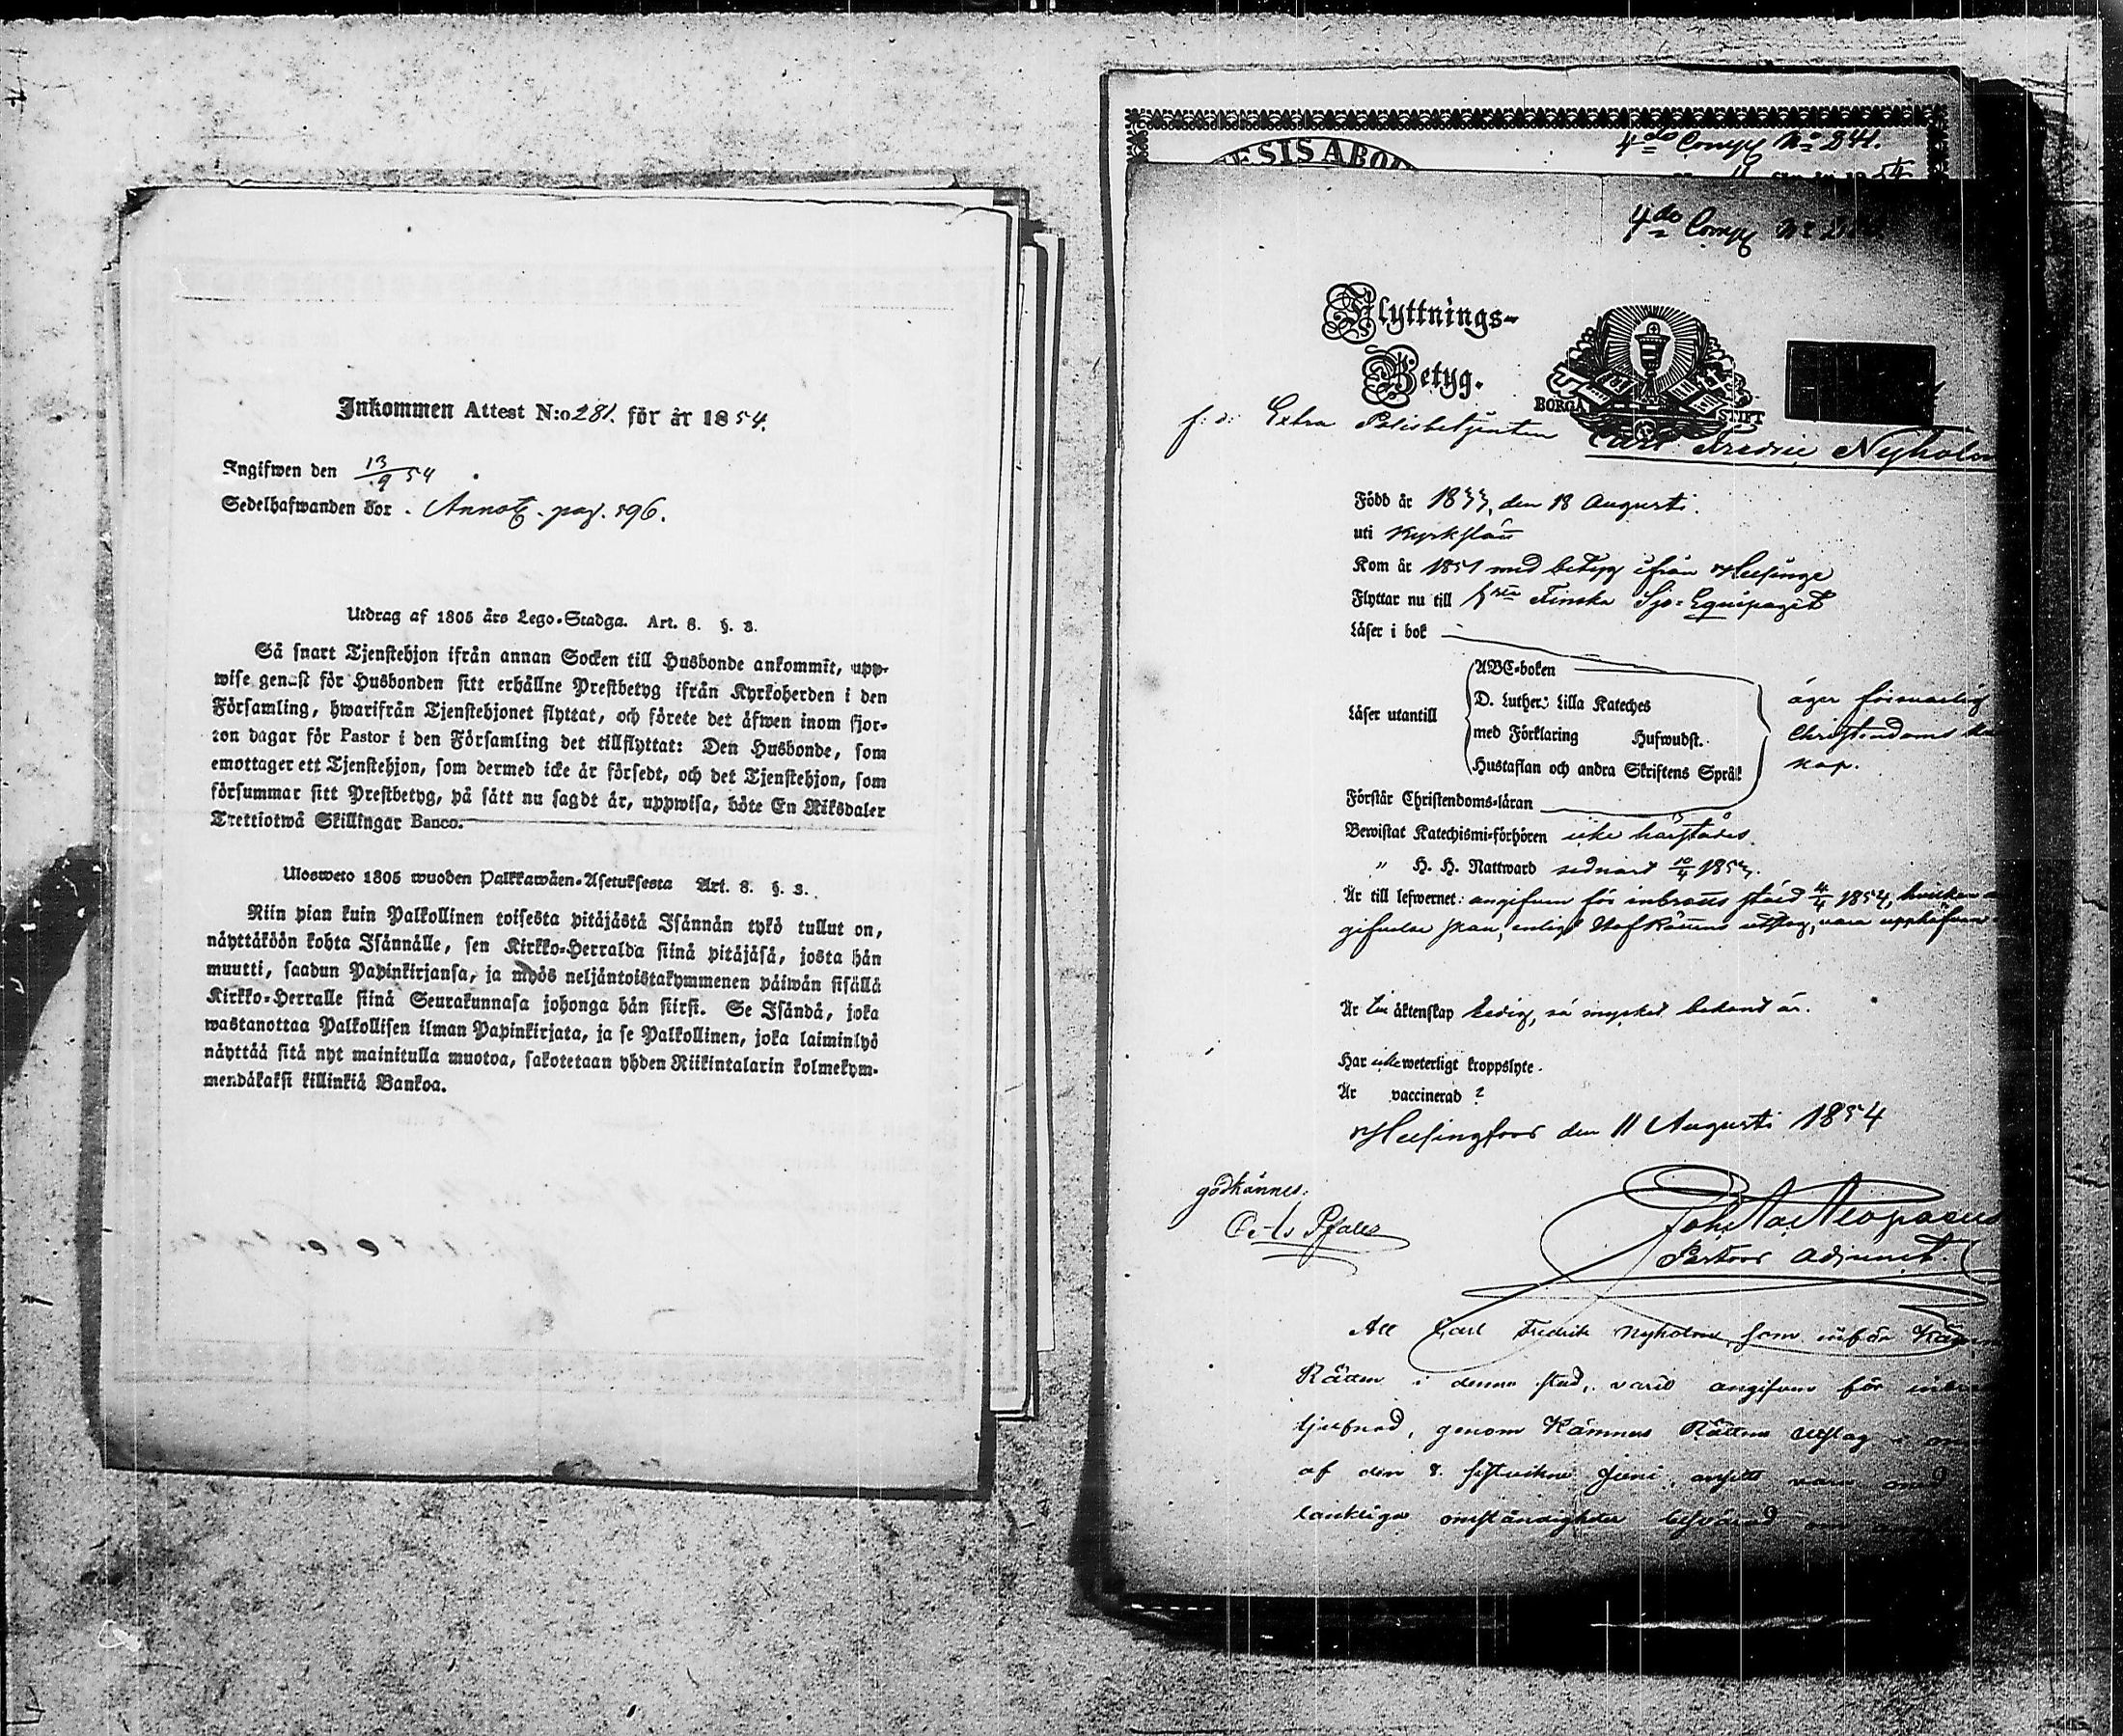 Inkommen Attest N:o 281. för år 1854.
Ingifwen den 13/9 54
Sedelhafwanden bor. Annot. pag. 596.
Utdrag af 1805 års Lego-Stadga. Art. 8. §. 3.
Så snart Tjenstehjon ifrån annan Socken till Husbonde ankommit, upp-
wise genast för Husbonden sitt erhållne Prestbetyg ifrån Kyrkoherden i den
Församling, hwarifrån Tjenstehjonet flyttat, och förete det äfwen inom fjor-
ton dagar för Pastor i den Församling det tillflyttat: Den Husbonde, som
emottager ett Tjenstehjon, som dermed icke är försedt, och det Tjenstehjon, som
försummar sitt Prestbetyg, på sätt nu sagdt är, uppwisa, böte En Riksdaler
Trettiotwå Skillingar Banco.
Ulosweto 1805 wuoden Palkkawäen-Asetuksesta Art. 8. §. 3.
Niin pian kuin Palkollinen toisesta pitäjästä Isännän tykö tullut on,
näyttäköön kohta Isännälle, sen Kirkko-Herralda siinä pitäjäsä, josta hän
muutti, saadun Papinkirjansa, ja myös neljäntoistakymmenen päiwän sisällä
Kirkko-Herralle siinä Seurakunnasa johonga hän siirsi. Se Isändä, joka
wastanottaa Palkollisen ilman Papinkirjata, ja se Palkollinen, joka laiminlyö
näyttää sitä nyt mainitulla muotoa, sakotetaan yhden Riikintalarin kolmekym-
mendäkaksi killinkiä Bankoa.
4de Comp No 241.
54
4de Comp No
Flyttnings-
Betyg.
BORGÅ STIFT
f: d: Extra Polisbetjenten Carl Fredric Nyholm
Född år 1833, den 18 Augusti.
uti Kyrkslätt
Kom år 1851 med betyg ifrån Helsinge
Flyttar nu till 1sta Finska Sjö-Equipaget
Läser i bok
ABC-boken
D. Luthers Lilla Kateches
Läser utantill
med Förklaring Hufwudst.
Hustaflan och andra Skriftens Språk
äger försvarlig
Christendoms
kap.
Förstår Christendoms-läran
Bewistat Katechismi-förhören icke härstädes.
" H. H. Nattward sednast 10/4 1853.
Är till lefwernet: angifven för inbrotts stöld 4/4 1854, hvilken
gifvelse skan, enligt HofRättens utslag, vara upphäfven
Är till äktenskap Ledig, så mycket bekant är.
Har icke weterligt kroppslyte.
Är vaccinerad ?
Helsingfors den 11 Augusti 1854
godkännes:
Pastors Adjunct.
Att Carl Fredrik Nyholm, som inför Kämners
Rätten i denna stad, varit angifven för
tjufnad, genom Kämners Rättens Utslag
af den 8. sistvikne Juni, ansetts vara
omständigheter besvärad